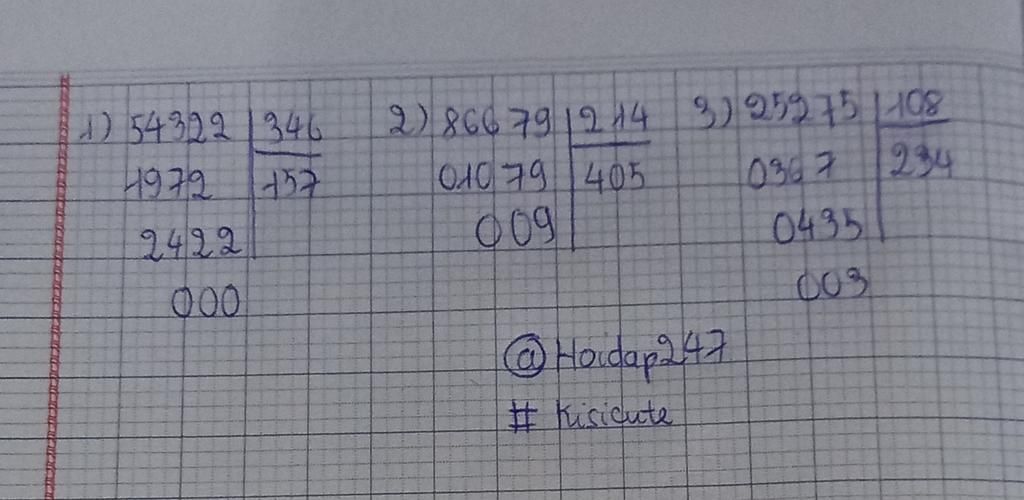 1) 54322 346 2) 86679 214 3) 25275 108
1972 157 01079 405 0367 234
2422 009 0435
000 003
@Hoidap247
# Kisicute